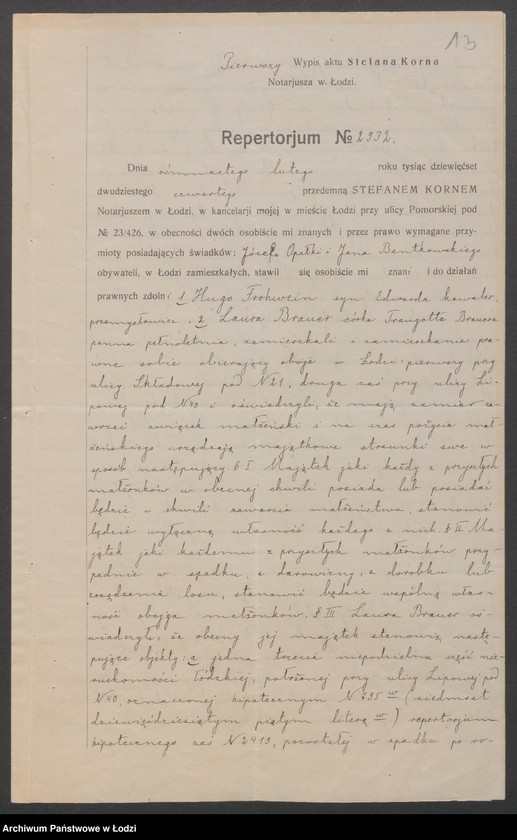 13
Pierwszy Wypis aktu Stefana Korna
Notarjusza w. Łodzi.
Repertorjum № 2332.
Dnia ósmnastego lutego roku tysiąc dziewięćset
dwudziestego czwartego przedemną STEFANEM KORNEM
Notarjuszem w Łodzi, w kancelarji mojej w mieście Łodzi przy ulicy Pomorskiej pod
№ 23/426, w obecności dwóch osobiście mi znanych i przez prawo wymagane przy-
mioty posiadających świadków: Józefa Opałki i Jana Bentkowskiego
obywateli, w Łodzi zamieszkałych, stawil się osobiście mi znani i do działań
prawnych zdolni 1 Hugo Frohwein syn Edwarda kawaler,
przemysłowiec i 2 Laura Brauer córka Traugotta Brauera
panna pełnoletnia, zamieszkali i zamieszkanie pra-
wne sobie obierający oboje w Łodzi: pierwszy przy
ulicy Składowej pod N 21, druga zaś przy ulicy Li-
powej pod N 40 i oświadczyli, że mają zamiar za-
wrzeć związek małżeński i na czas pożycia mał-
żeńskiego urządzają majątkowe stosunki swe w
sposób następujący: § I Majątek jaki każdy z przyszłych
małżonków w obecnej chwili posiada lub posiadać
będzie w chwili zawarcia małżeństwa, stanowić
będzie wyłączną własność każdego z nich. § II Ma-
jątek jaki każdemu z przyszłych małżonków przy-
padnie w spadku, z darowizny, z dorobku lub
zrządzenia losu, stanowić będzie wspólną włas-
ność obojga małżonków. § III Laura Brauer oś-
wiadczyła, że obecny jej majątek stanowią nastę-
pujące objekty: a jedna trzecia niepodzielna część nie-
ruchomości Łódzkiej, położonej przy ulicy Lipowej pod
N 40, oznaczonej hipotecznym N 795 (siedmset
dziewięćdziesiątym piątym literą) repertorjum
hipotecznego zaś N 2419, pozostałej w spadku po ro-
Archiwum Państwowe w Łodzi